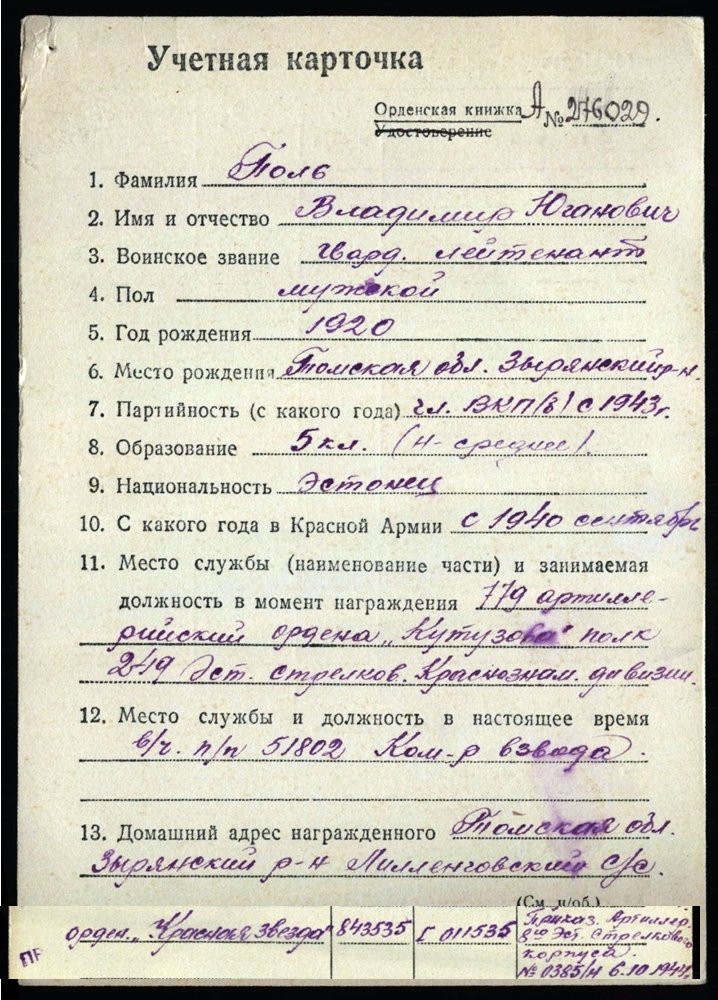 Учетная карточка
Орденская книжка А № 276029.
Удостоверение
1. Фамилия Поль
2. Имя и отчество Владимир Юганович
3. Воинское звание гвард. лейтенант
4. Пол мужской
5. Год рождения 1920
6. Место рождения Томская обл. Зырянский р-н.
7. Партийность (с какого года) чл. ВКП(б) с 1943 г.
8. Образование 5 кл. (н-среднее).
9. Национальность Эстонец
10. С какого года в Красной Армии с 1940 сентября
11. Место службы (наименование части) и занимаемая
должность в момент награждения 779 артилле-
рийский ордена „Кутузова“ полк
249 Эст. стрелков. Краснознам. дивизии.
12. Место службы и должность в настоящее время
в/ч. п/п 51802 Ком-р взвода.
13. Домашний адрес награжденного Томская обл.
Зырянский р-н Лилленговский с/с.
(См. н/об.)
орден „Красная Звезда“ 843535 Г 011535 Приказ. Артиллер.
8го Эст. Стрелкового
корпуса.
№ 0385/н 6.10.1944г.
ПР